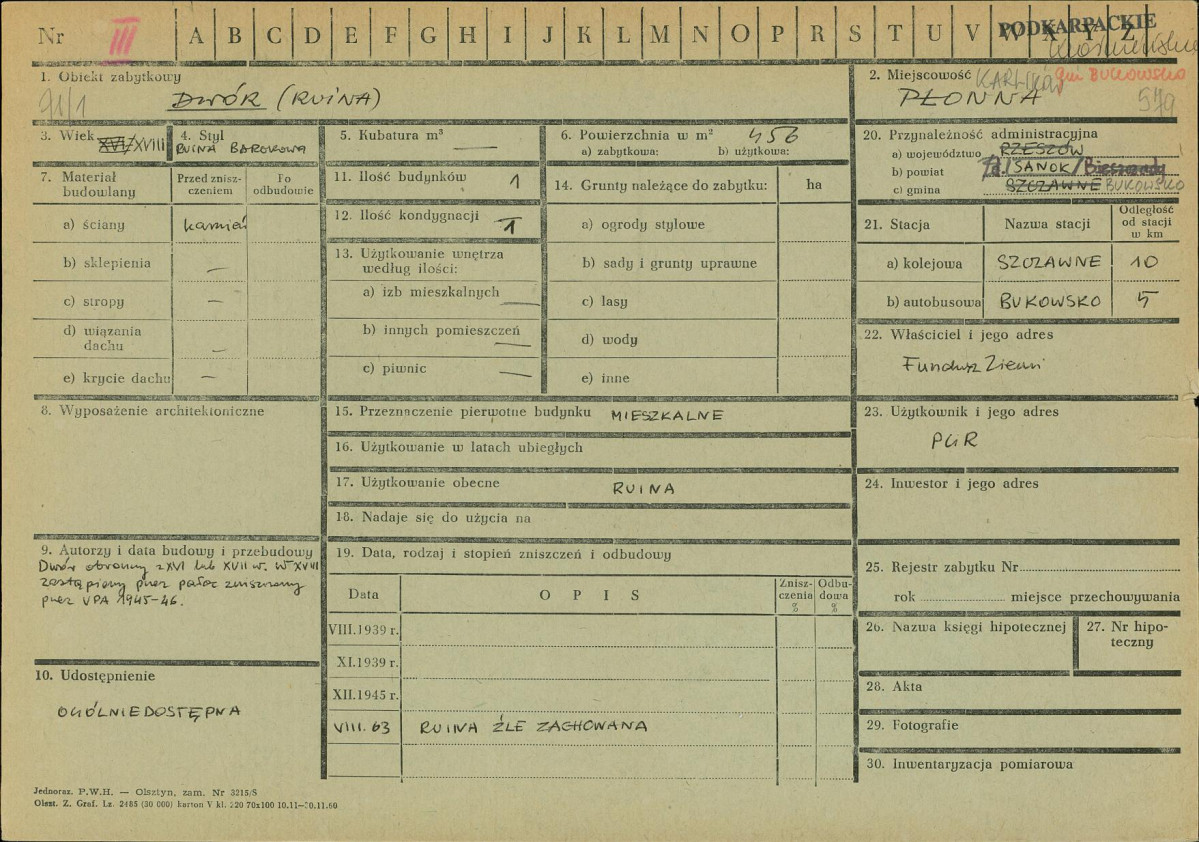 Nr III A B C D E F G H I J K L M N O P R S T U V W X Y Z
PODKARPACKIE
1. Obiekt zabytkowy
91/1
DWÓR (RUINA)
2. Miejscowość KARLIKÓW gm BUKOWSKO
PŁONNA
579
3. Wiek XVI/XVIII
4. Styl
RUINA BAROKOWA
5. Kubatura m³
—
6. Powierzchnia w m² 456
a) zabytkowa: b) użytkowa:
20. Przynależność administracyjna
a) województwo RZESZÓW
b) powiat SANOK/Bieszczady
c) gmina SZCZAWNE BUKOWSKO
7. Materiał budowlany
Przed znisz-
czeniem
Po
odbudowie
a) ściany kamień
b) sklepienia —
c) stropy —
d) wiązania
dachu —
e) krycie dachu —
11. Ilość budynków 1
12. Ilość kondygnacji 1
13. Użytkowanie wnętrza
według ilości:
a) izb mieszkalnych —
b) innych pomieszczeń —
c) piwnic —
14. Grunty należące do zabytku: ha
a) ogrody stylowe
b) sady i grunty uprawne
c) lasy
d) wody
e) inne
21. Stacja Nazwa stacji
Odległość
od stacji
w km
a) kolejowa SZCZAWNE 10
b) autobusowa BUKOWSKO 5
22. Właściciel i jego adres
Fundusz Ziemi
8. Wyposażenie architektoniczne
15. Przeznaczenie pierwotne budynku MIESZKALNE
16. Użytkowanie w latach ubiegłych
17. Użytkowanie obecne RUINA
18. Nadaje się do użycia na
23. Użytkownik i jego adres
PGR
24. Inwestor i jego adres
9. Autorzy i data budowy i przebudowy
Dwór obronny z XVI lub XVII w. W XVIII
zastąpiony przez pałac zniszczony
przez UPA 1945-46.
10. Udostępnienie
OGÓLNIEDOSTĘPNA
19. Data, rodzaj i stopień zniszczeń i odbudowy
Data O P I S
Znisz-
czenia
%
Odbu-
dowa
%
VIII.1939 r.
XI.1939 r.
XII.1945 r.
VIII. 63 RUINA ŹLE ZACHOWANA
25. Rejestr zabytku Nr
rok miejsce przechowywania
26. Nazwa księgi hipotecznej
27. Nr hipo-
teczny
28. Akta
29. Fotografie
30. Inwentaryzacja pomiarowa
Jednoraz. P.W.H. — Olsztyn, zam. Nr 3215/S
Olszt. Z. Graf. Lz. 2485 (30 000) karton V kl. 220 70x100 10.11—30.11.60